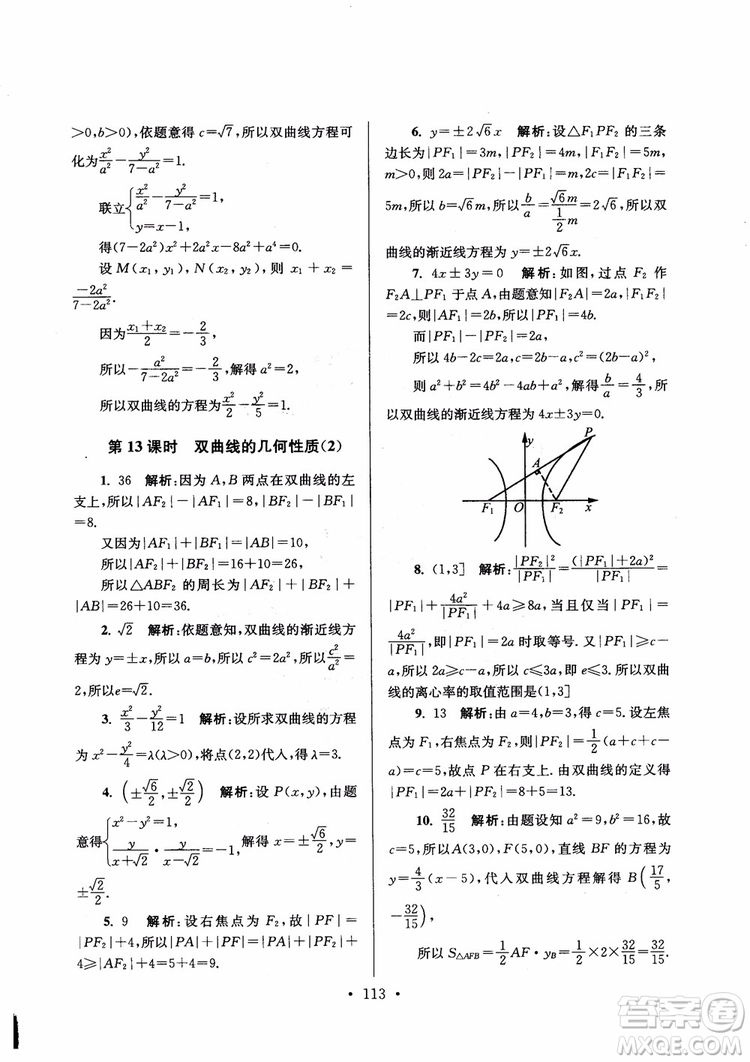 >0,b>0),依题意得 c=√7,所以双曲线方程可
化为x²/a²-y²/(7-a²)=1.
联立{x²/a²-y²/(7-a²)=1,
y=x-1,
得(7-2a²)x²+2a²x-8a²+a⁴=0.
设 M(x₁,y₁),N(x₂,y₂),则 x₁+x₂=
-2a²/(7-2a²).
因为(x₁+x₂)/2=-2/3,
所以-a²/(7-2a²)=-2/3,解得 a²=2,
所以双曲线的方程为x²/2-y²/5=1.
第 13 课时 双曲线的几何性质(2)
1. 36 解析:因为 A,B 两点在双曲线的左
支上,所以|AF₂|-|AF₁|=8,|BF₂|-|BF₁|
=8.
又因为|AF₁|+|BF₁|=|AB|=10,
所以|AF₂|+|BF₂|=16+10=26,
所以△ABF₂ 的周长为|AF₂|+|BF₂|+
|AB|=26+10=36.
2. √2 解析:依题意知,双曲线的渐近线方
程为 y=±x,所以 a=b,所以e²=1+(b/a)²=
2,所以e=√2.
3. x²/3-y²/12=1 解析:设所求双曲线的方程
为 x²-y²/4=λ(λ>0),将点(2,2)代入,得 λ=3.
4. (±√6/2,±√2/2) 解析:设 P(x,y),由题
意得{x²-y²=1,
y/(x+√2)·y/(x-√2)=1 ⇒x=±√6/2,y=
±√2/2.
5. 9 解析:设右焦点为 F₂,故|PF|=
|PF₂|+4,所以|PA|+|PF|=|PA|+|PF₂|+
4⩾|AF₂|+4=5+4=9.
6. y=±2√6x 解析:设△F₁PF₂ 的三条
边长为|PF₁|=3m,|PF₂|=4m,|F₁F₂|=5m,
m>0,则 2a=|PF₂|-|PF₁|=m,2c=|F₁F₂|=
5m,所以 b=√6m,所以b/a=√6m/(1/2 m)=2√6,所以双
曲线的渐近线方程为 y=±2√6x.
7. 4x±3y=0 解析:如图,过点 F₂ 作
F₂A⊥PF₁ 于点 A,由题意知|F₂A|=2a,|F₁F₂|
=2c,则|AF₁|=2b,所以|PF₁|=4b.
而|PF₁|-|PF₂|=2a,
所以 4b-2c=2a,c=2b-a,c²=(2b-a)²,
a²+b²=4b²-4ab+a²,解得b/a=4/3,
所以双曲线的渐近线方程为 4x±3y=0.
y
P
A
F₁ O F₂ x
8. (1,3] 解析:|PF₂|²/|PF₁|=(|PF₁|+2a)²/|PF₁|=
|PF₁|+4a²/|PF₁|+4a⩾8a,当且仅当|PF₁|=
4a²/|PF₁|,即|PF₁|=2a 时取等号.又|PF₁|⩾c-
a,所以 2a⩾c-a,所以 c⩽3a,即 e⩽3.所以双曲
线的离心率的取值范围是(1,3]
9. 13 解析:由 a=4,b=3,得 c=5.设左焦
点为 F₁,右焦点为 F₂,则|PF₂|=1/2(a+c+c-
a)=c=5,故点 P 在右支上.由双曲线的定义得
|PF₁|=2a+|PF₂|=8+5=13.
10. 32/15 解析:由题设知 a²=9,b²=16,故
c=5,所以A(3,0),F(5,0),直线 BF 的方程为
y=4/3(x-5),代入双曲线方程解得 B(17/5,
-32/15).
所以 S△AFB=1/2AF·yB=1/2×2×32/15=32/15.
• 113 •
答案圈
MXQE.COM